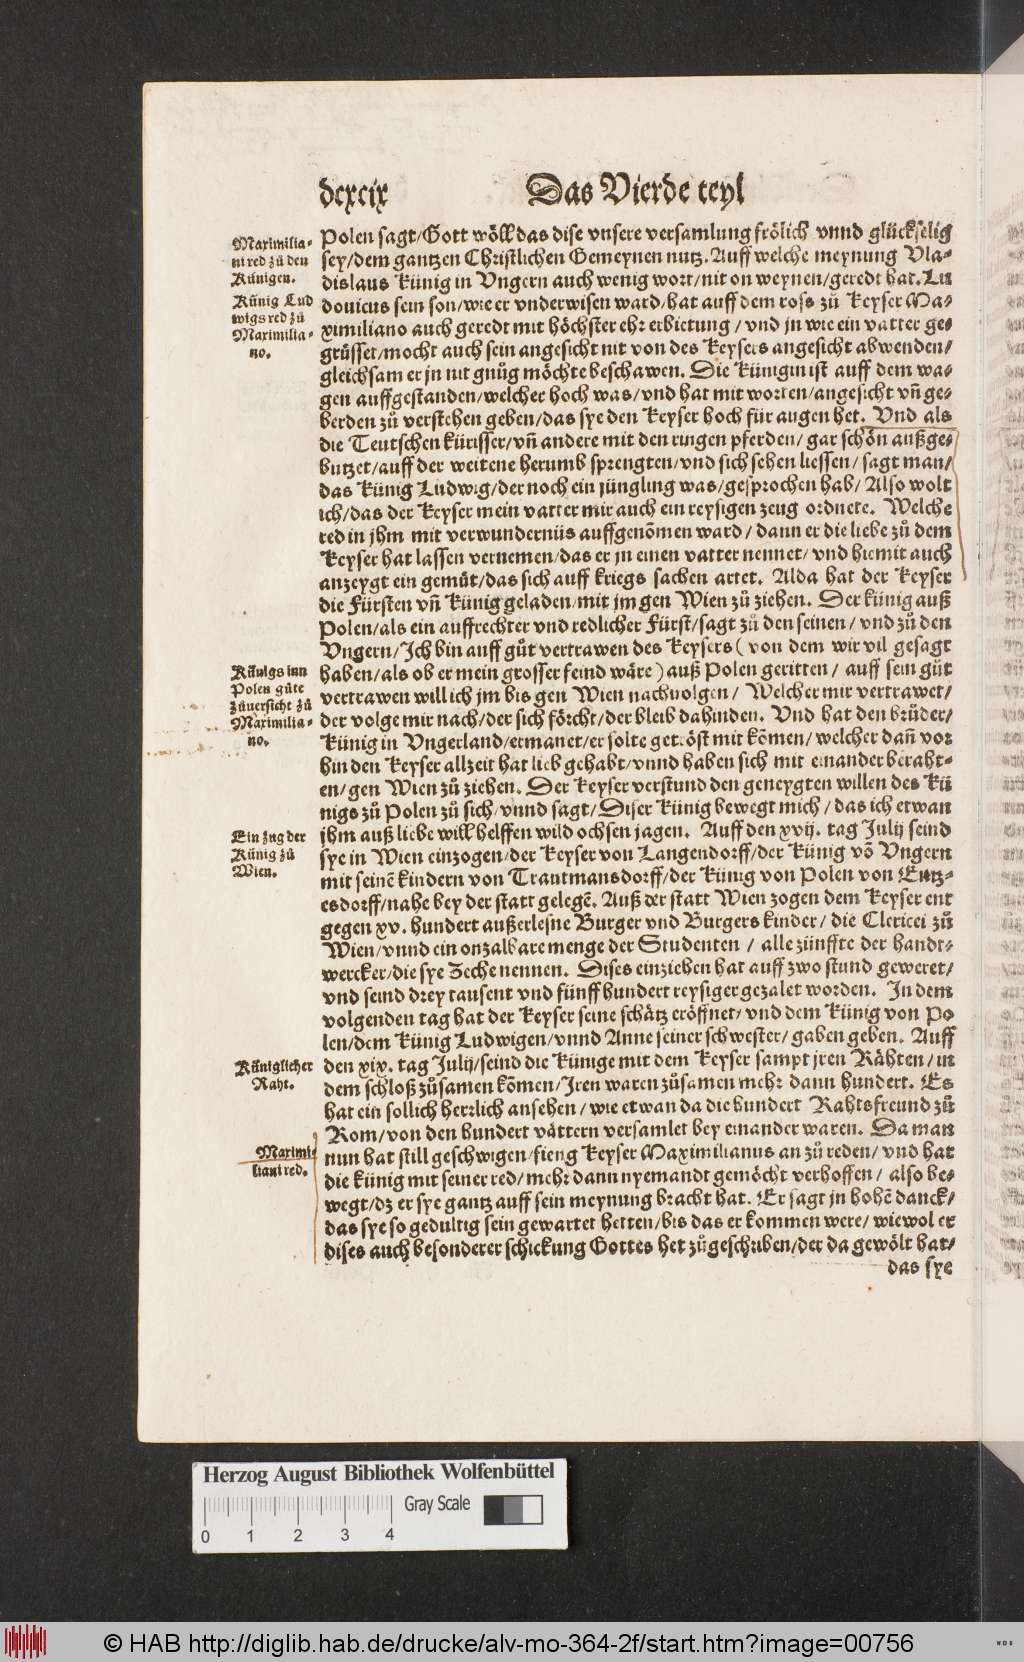 dcxcix
Das Vierde teyl
Maximilia-
ni red zů den
Künigen.
Künig Lud
wigs red zů
Maximilia-
no.
Polen sagt/Gott wöll das dise vnsere versamlung frölich vnnd glückselig
sey/dem gantzen Christlichen Gemeynen nutz. Auff welche meynung Vla-
dislaus Künig in Vngern auch wenig wort/nit on weynen/geredt hat. Lu
douicus sein son/wie er vnderwisen ward/hat auff dem ross zů Keyser Ma-
ximiliano auch geredt mit höchster ehr erbietung/vnd jn wie ein vatter ge-
grüsset/mocht auch sein angesicht nit von des Keysers angesicht abwenden/
gleichsam er jn nit gnůg möchte beschawen. Die Künigin ist auff dem wa-
gen auffgestanden/welcher hoch was/vnd hat mit worten/angesicht vñ ge-
berden zů verstehen geben/das sye den Keyser hoch für augen het. Vnd als
die Teutschen kürisser/vñ andere mit den ringen pferden/gar schön außge-
butzet/auff der weitene herumb sprengten/vnd sich sehen liessen/sagt man/
das Künig Ludwig/der noch ein jüngling was/gesprochen hab/Also wolt
ich/das der Keyser mein vatter mir auch ein reysigen zeug ordnete. Welche
red in jhm mit verwundernüs auffgenõmen ward/dann er die liebe zů dem
Keyser hat lassen vernemen/das er jn einen vatter nennet/vnd hiemit auch
anzeygt ein gemůt/das sich auff kriegs sachen artet. Alda hat der Keyser
die Fürsten vñ Künig geladen/mit jm gen Wien zů ziehen. Der künig auß
Polen/als ein auffrechter vnd redlicher Fürst/sagt zů den seinen/vnd zů den
Vngern/Ich bin auff gůt vertrawen des Keysers (von dem wir vil gesagt
Künigs inn
Polen gůte
zůuersicht zů
Maximilia-
no.
haben/als ob er mein grosser feind wäre) auß Polen geritten/auff sein gůt
vertrawen will ich jm bis gen Wien nachuolgen/Welcher mir vertrawet/
der volge mir nach/der sich förcht/der bleib dahinden. Vnd hat den brůder/
Künig in Vngerland/ermanet/er solte getröst mit kõmen/welcher dañ vor
hin den Keyser allzeit hat lieb gehabt/vnnd haben sich mit einander beraht-
en/gen Wien zů ziehen. Der Keyser verstund den geneygten willen des Kü
nigs zů Polen zů sich/vnnd sagt/Diser Künig bewegt mich/das ich etwan
Ein zug der
Künig zů
Wien.
jhm auß liebe will helffen wild ochsen jagen. Auff den xvij. tag Julij seind
sye in Wien einzogen/der Keyser von Langendorff/der Künig võ Vngern
mit seinē kindern von Trautmansdorff/der Künig von Polen von Entz-
esdorff/nahe bey der statt gelegē. Auß der statt Wien zogen dem Keyser ent
gegen xv. hundert außerlesne Burger vnd Burgers kinder/die Clericei zů
Wien/vnnd ein onzalbare menge der Studenten/alle zünffte der handt-
wercker/die sye Zeche nennen. Dises einziehen hat auff zwo stund geweret/
vnd seind drey tausent vnd fünff hundert reysiger gezalet worden. In dem
volgenden tag hat der Keyser seine schätz eröffnet/vnd dem Künig von Po
len/dem Künig Ludwigen/vnnd Anne seiner schwester/gaben geben. Auff
Küniglicher
Raht.
den xix. tag Julij/seind die Künige mit dem Keyser sampt jren Rähten/in
dem schloß zůsamen kõmen/Iren waren zůsamen mehr dann hundert. Es
hat ein sollich herrlich ansehen/wie etwan da die hundert Rahtsfreund zů
Rom/von den hundert vättern versamlet bey einander waren. Da man
Maximi-
liani red.
nun hat still geschwigen/fieng Keyser Maximilianus an zů reden/vnd hat
die künig mit seiner red/mehr dann nyemandt gemöcht verhoffen/also be-
wegt/dz er sye gantz auff sein meynung bracht hat. Er sagt jn hohē danck/
das sye so gedultig sein gewartet hetten/bis das er kommen were/wiewol er
dises auch besonderer schickung Gottes het zůgeschriben/der da gewölt hat/
das sye
Herzog August Bibliothek Wolfenbüttel
0 1 2 3 4
Gray Scale
© HAB http://diglib.hab.de/drucke/alv-mo-364-2f/start.htm?image=00756